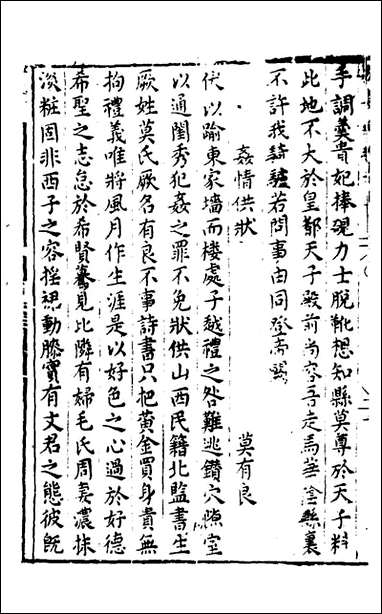 手調羹貴妃捧硯力士脫靴想知縣莫尊於天子料
此地不大於皇都天子殿前尚容吾走馬華陰縣裏
不許我騎驢若問事由同登帝
姦情供狀
莫有良
伏以踰東家墻而樓處子越禮之咎難逃鑽穴隙室
以通閨秀犯姦之罪不免狀供山西民籍北監書生
厥姓莫氏厥名有良不事詩書只把黃金買身貴無
拘禮義唯將風月作生涯是以好色之心過於好德
希聖之志怠於希賢驀見比隣有婦毛氏周妻濃抹
淡粧固非西子之容搖裙動勝實有文君之態彼既